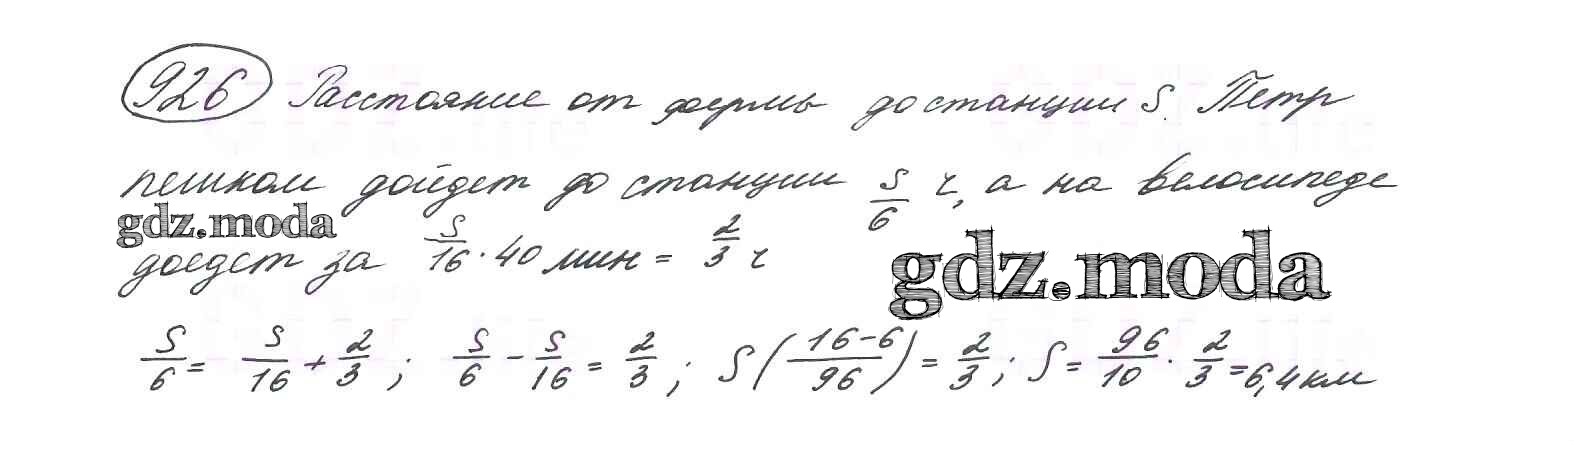 926 Расстояние от фермы до станции S. Петр
пешком дойдет до станции S/6 ч, а на велосипеде
gdz.moda
доедет за S/16 · 40 мин = 2/3 ч
gdz.moda
S/6 = S/16 + 2/3 ; S/6 - S/16 = 2/3 ; S(16-6/96) = 2/3 ; S = 96/10 · 2/3 = 6,4 км